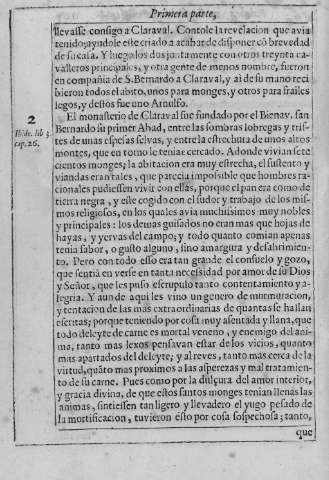 Primera parte,
llevasse consigo a Claraval. Contole la revelacion que avia
tenido; ayudole este criado a acabar de disponer cō brevedad
de su casa. Y luego los dos juntamente con otros treynta ca-
valleros principales, y otra gente de menos nombre, fueron
en compañia de S. Bernardo a Claraval, y ai de su mano reci
bieron todos el abito, unos para monges, y otros para frailes
legos, y destos fue uno Arnulfo.
2
El monasterio de Claraval fue fundado por el Bienav. san
Bernardo su primer Abad, entre las sombras lobregas y tris-
lib. 3.
cap. 26.
tes de unas espesas selvas, y entre la estrechura de unos altos
montes, que en torno le tenian cercado. Adonde vivian sete
cientos monges; la abitacion era muy estrecha, el sustento y
viandas eran tales, que parecia impossible que hombres ra-
cionales pudiessen vivir con ellas, porque el pan era como de
tierra negra, y este cogido con el sudor y trabajo de los mis-
mos religiosos, en los quales avia muchissimos muy nobles
y principales: los demas guisados no eran mas que hojas de
hayas, y yervas del campo; y todo quanto comian apenas
tenia sabor, o gusto alguno, sino amargura y desabrimien-
to. Pero con todo esso era tan grande el consuelo y gozo,
que sentiā en verse en tanta necessidad por amor de su Dios
y Señor, que les puso escrupulo tanto contentamiento y a-
legria. Y aun de aqui les vino un genero de murmuracion,
y tentacion de las mas extraordinarias de quantas se hallan
escritas; porque teniendo por cosa muy assentada y llana, que
todo deleyte de carne es mortal veneno, y enemigo del ani-
ma, tanto mas lexos pensavan estar de los vicios, quanto
mas apartados del deleyte; y al reves, tanto mas cerca de la
virtud, quāto mas proximos a las asperezas y mal tratamien-
to de su carne. Pues como por la dulçura del amor interior,
y gracia divina, de que estos santos monges tenian llenas las
animas, sintiessen tan ligero y llevadero el yugo pesado de
la mortificacion, tuvieron esto por cosa sospechosa; tanto,
que